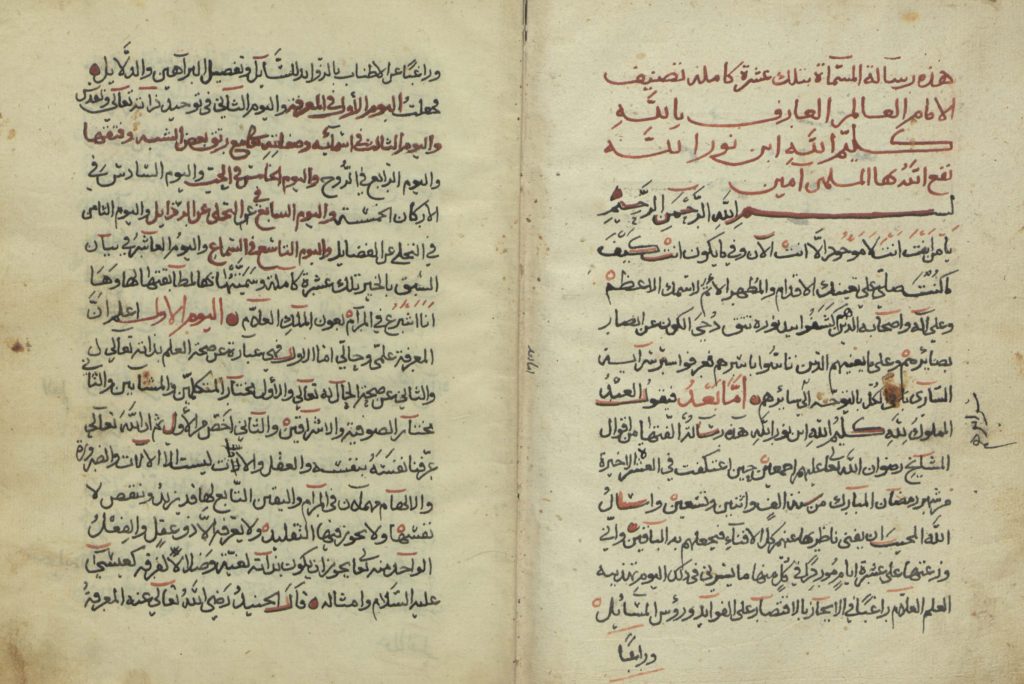 هذه رسالة المسماة بتلك عشرة كاملة تصنيف
الامام العالم العارف بالله
كليم الله ابن نور الله
نفع الله بها المسلمين امين
بسم الله الرحمن الرحيم
يا من انت انت لا موجود الا انت الآن وفيما يكون انت كيف
ما كنت صلي على تعينك الاقدم والمظهر الاتم لاسمك الاعظم
وعلى آله واصحابه الذين هم كشفوا بيد نوره دجى الكون عن ابصار
بصائرهم وعلى تابعيهم الذين فعرفوا سر سراية
الساري في الكل بالتوجه الى سائرهم اما بعد فيقول العبد
المملوك لله كليم الله ابن نور الله هذه رسالة الفتها من اقوال
المشايخ رضوان الله تعالى عليهم اجمعين حين اعتكفت في العشر الاخيرة
من شهر رمضان المبارك من سنة الف واثنين وتسعين واسال
الله المجيب ان يفنى ناظريها عنهم كل الافناء فيجعلهم به الباقين واني
وزعتها على عشرة ايام في كل منها ما يسر لي في ذلك اليوم
العلم العلام راغبا في الايجاز بالاقتصار على الفوايد ورؤس المسايل
وراغبا
وراغبا عن الاطناب بالزوايد للسايل وتفصيل البراهين والدلايل
فجعلت اليوم الاول في المعرفة واليوم الثاني في توحيد ذاته تعالى وتقدس
واليوم الثالث في اسمائه وصفاته مع رتق بعض الشبه وفتقها
واليوم الرابع في الروح واليوم الخامس في الحب واليوم السادس في
الاركان الخمسة واليوم السابع في التخلي عن الرذايل واليوم الثامن
في التحلي عن الفضايل واليوم التاسع في السماع واليوم العاشر في بيان
الشيق بالخير تلك عشرة كاملة وسميتها بها لمطابقتها لها وها
انا اشرع في المرام بعون الملك العلام اليوم الاول اعلم ان
المعرفة علمي وحالي اما الاول فهي عبارة عن صحة العلم بذاته تعالى
والثاني عن صحة الحال به تعالى والاول مختار المتكلمين والمشائين والثاني
مختار الصوفية والاشراقين والثاني اخص من الاول ثم ان الله تعالى
عرفنا نفسه بنفسه والعقل والآيات ليست الا الآلات والضرورة
والالهام مهملان في المرام واليقين التابع لها قد يزيد وينقص لا
نفسها ولا يجوز فيها التقليد ولا تعرفه الا ذو عقل والفعل
الواحد منه تعالى يجوز ان يكون بذاته لعنية وضلالا لفرقة كعيسى
عليه السلام وامثاله قال الجنيد رضي الله تعالى عنه المعرفة